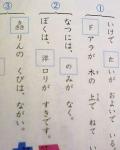 ①
いけで たいが およいでいる。
Fアラが 木の 上で ねて い
②
なつには、のみが なく。
ぼくは、洋ロリが すきです。
③
りんの くびは、ながい。